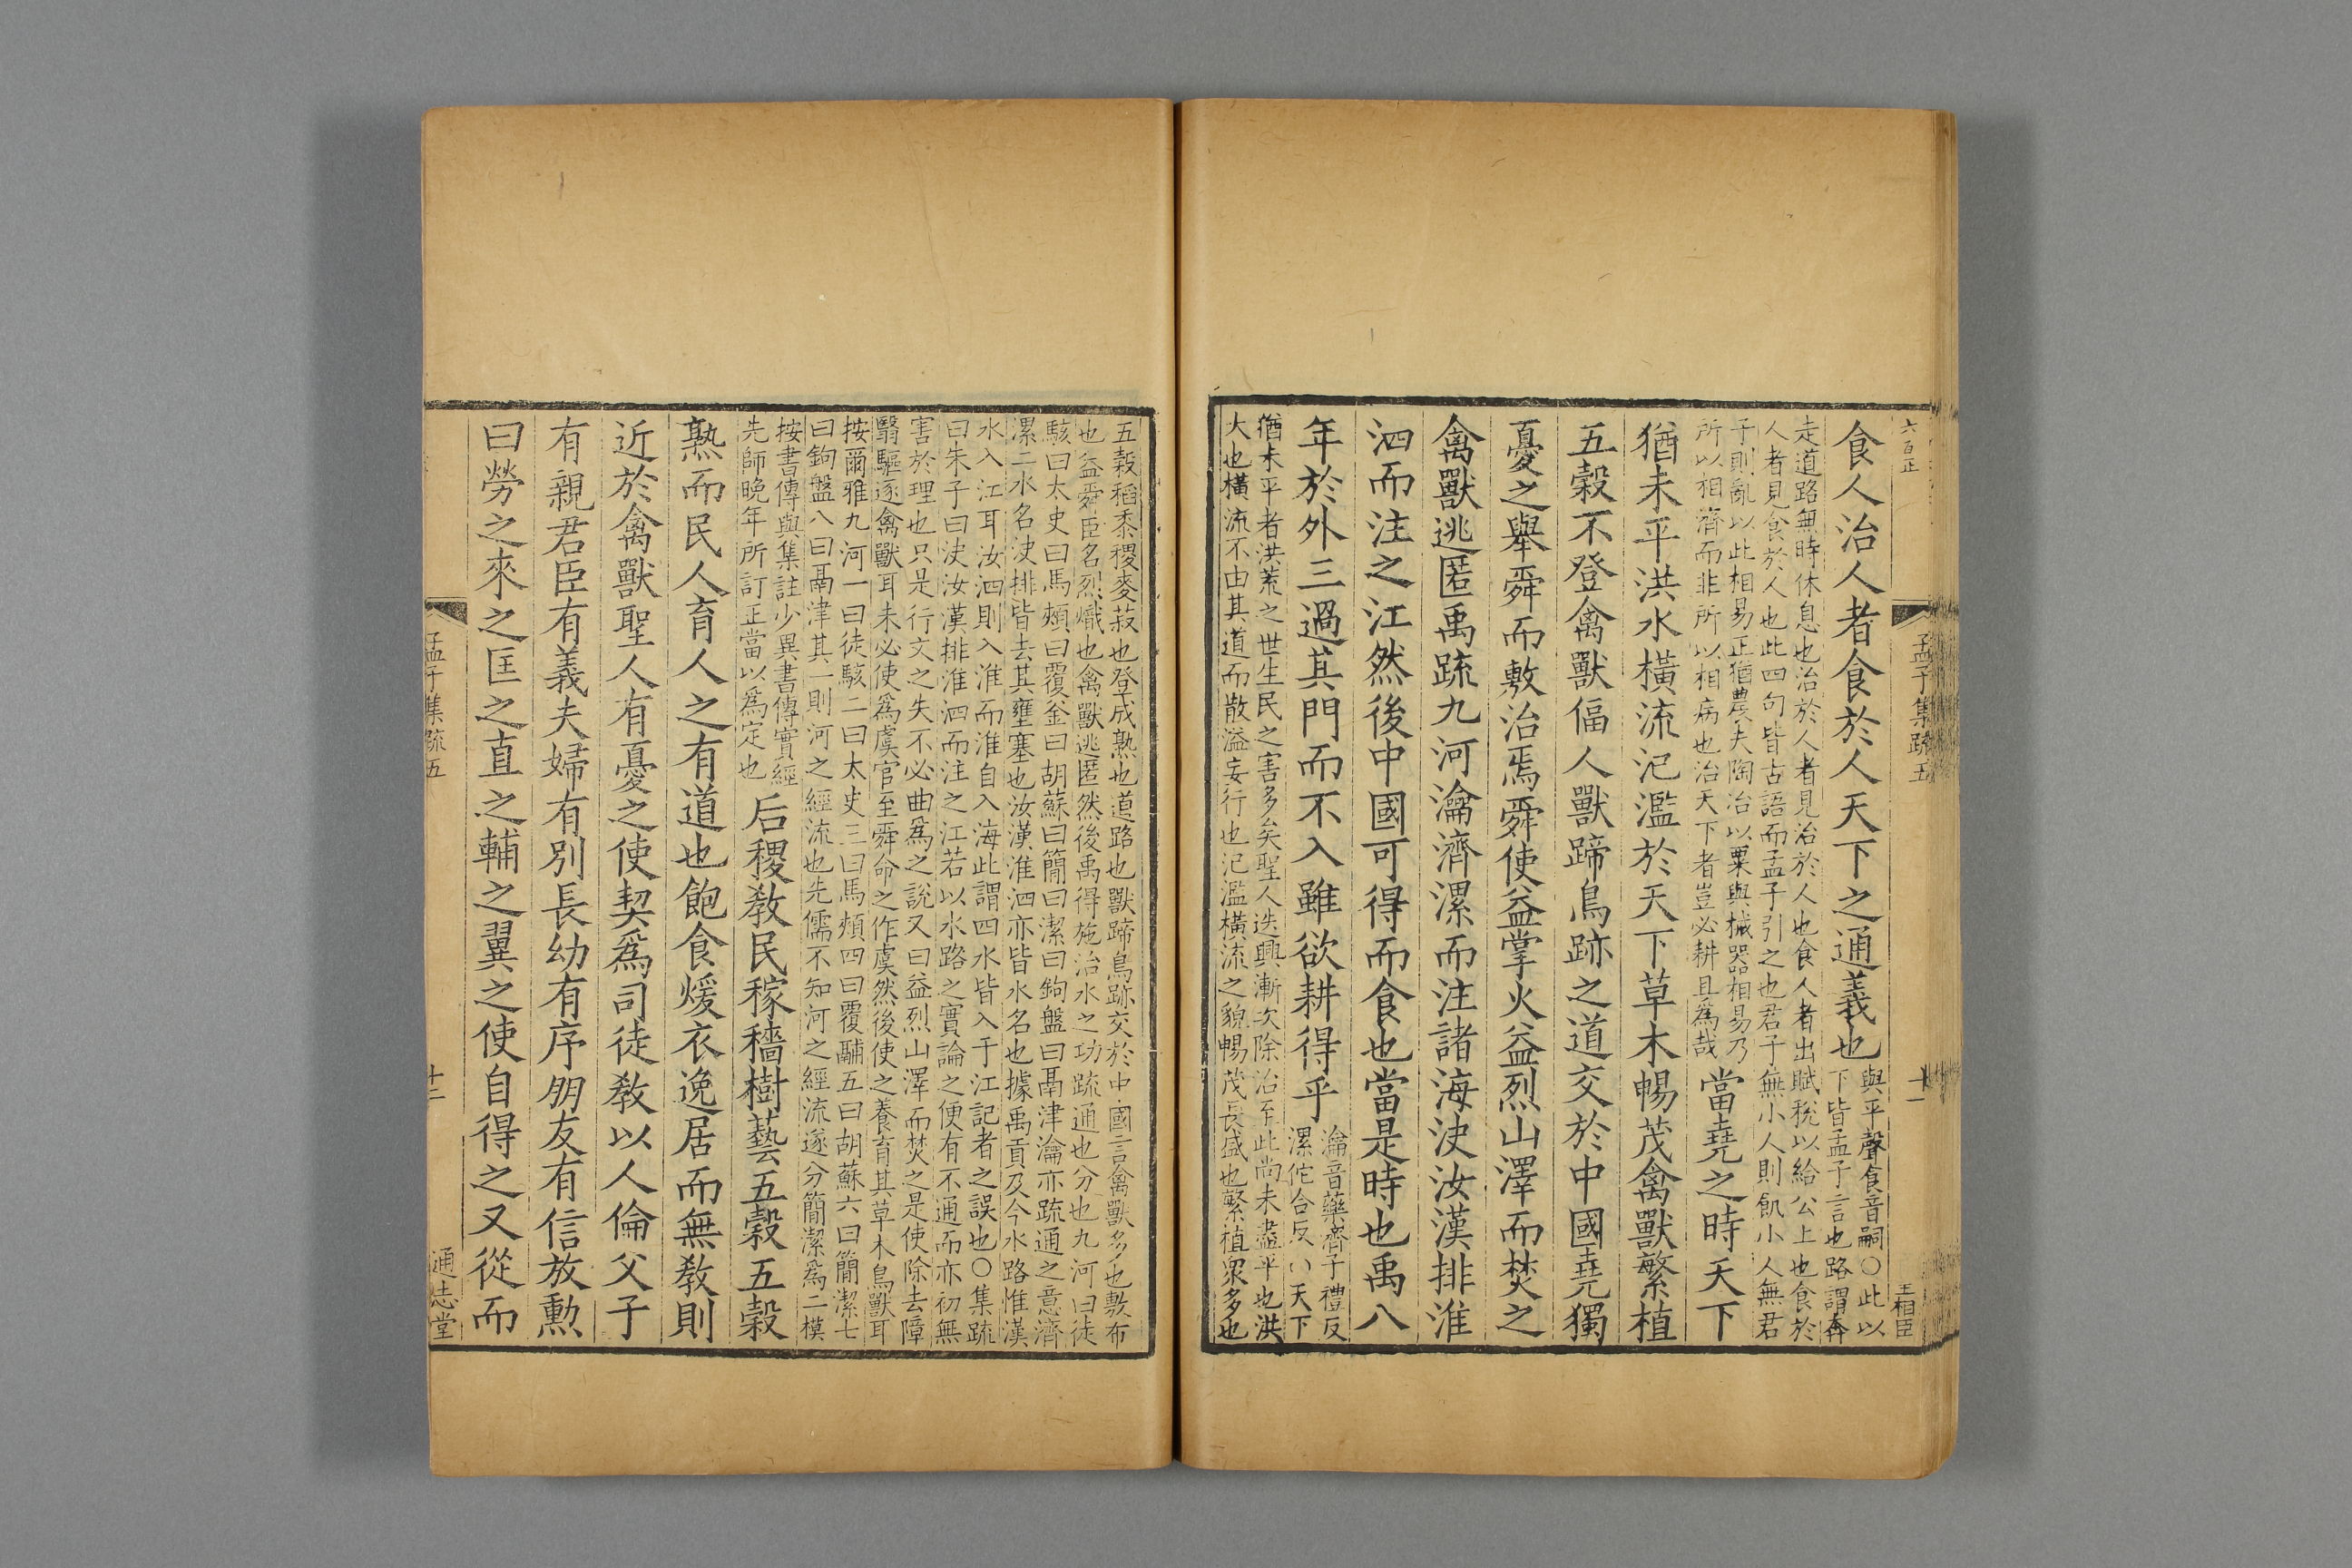 六百正
孟子集疏五
十一
王相臣
食人治人者食於人天下之通義也與平聲食音嗣○此以
下皆孟子言也路謂奔
走道路無時休息也治於人者見治於人也食人者出賦稅以給公上也食於
人者見食於人也此四句皆古語而孟子引之也君子無小人則飢小人無君
子則亂以此相易正猶農夫陶冶以粟與械器相易乃
所以相濟而非所以相病也治天下者豈必耕且為哉
當堯之時天下
猶未平洪水橫流氾濫於天下草木暢茂禽獸繁植
五穀不登禽獸偪人獸蹄鳥跡之道交於中國堯獨
憂之舉舜而敷治焉舜使益掌火益烈山澤而焚之
禽獸逃匿禹疏九河瀹濟漯而注諸海決汝漢排淮
泗而注之江然後中國可得而食也當是時也禹八
年於外三過其門而不入雖欲耕得乎瀹音藥濟子禮反
漯佗合反○天下
猶未平者洪荒之世生民之害多矣聖人迭興漸次除治至此尚未盡平也洪
大也橫流不由其道而散溢妄行也氾濫橫流之貌暢茂長盛也繁植眾多也
五穀稻黍稷麥菽也登成熟也道路也獸蹄鳥跡交於中國言禽獸多也敷布
也益舜臣名烈熾也禽獸逃匿然後禹得施治水之功疏通也分也九河曰徒
駭曰太史曰馬頰曰覆釜曰胡蘇曰簡曰潔曰鉤盤曰鬲津瀹亦疏通之意濟
漯二水名決排皆去其壅塞也汝漢淮泗亦皆水名也據禹貢及今水路惟漢
水入江耳汝泗則入淮而淮自入海此謂四水皆入于江記者之誤也○集疏
曰朱子曰決汝漢排淮泗而注之江若以水路之實論之便有不通而亦初無
害於理也只是行文之失不必曲為之說又曰益烈山澤而焚之是使除去障
翳驅逐禽獸耳未必使為虞官至舜命之作虞然後使之養育其草木鳥獸耳
按爾雅九河一曰徒駭二曰太史三曰馬頰四曰覆鬴五曰胡蘇六曰簡潔七
曰鉤盤八曰鬲津其一則河之經流也先儒不知河之經流遂分簡潔為二模
按書傳與集註少異書傳實經
先師晚年所訂正當以為定也
后稷教民稼穡樹藝五穀五穀
熟而民人育人之有道也飽食煖衣逸居而無教則
近於禽獸聖人有憂之使契為司徒教以人倫父子
有親君臣有義夫婦有別長幼有序朋友有信放勳
曰勞之來之匡之直之輔之翼之使自得之又從而
孟子集疏五
十二
通志堂